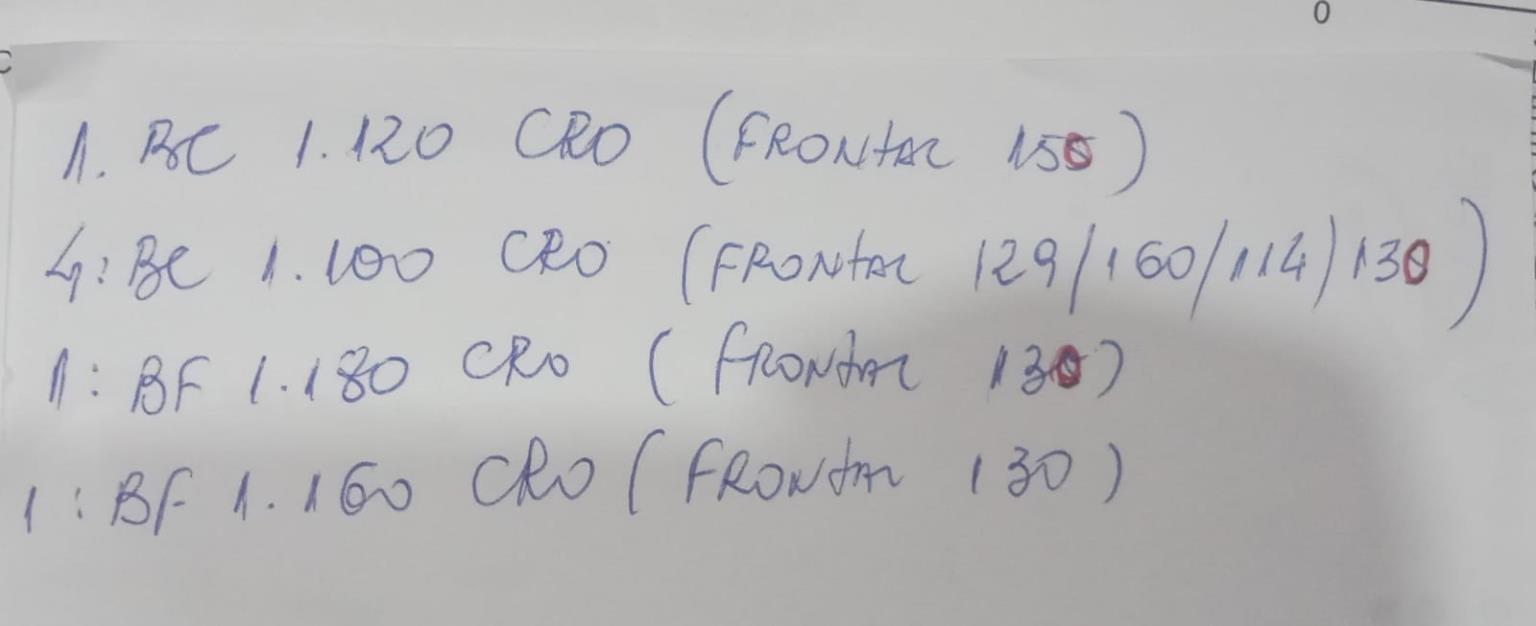 0
1. BC 1.120 CRO (FRONTAL 150)
4: BC 1.100 CRO (FRONTAL 129/160/114/130)
1: BF 1.180 CRO (FRONTAL 130)
1: BF 1.160 CRO (FRONTAL 130)